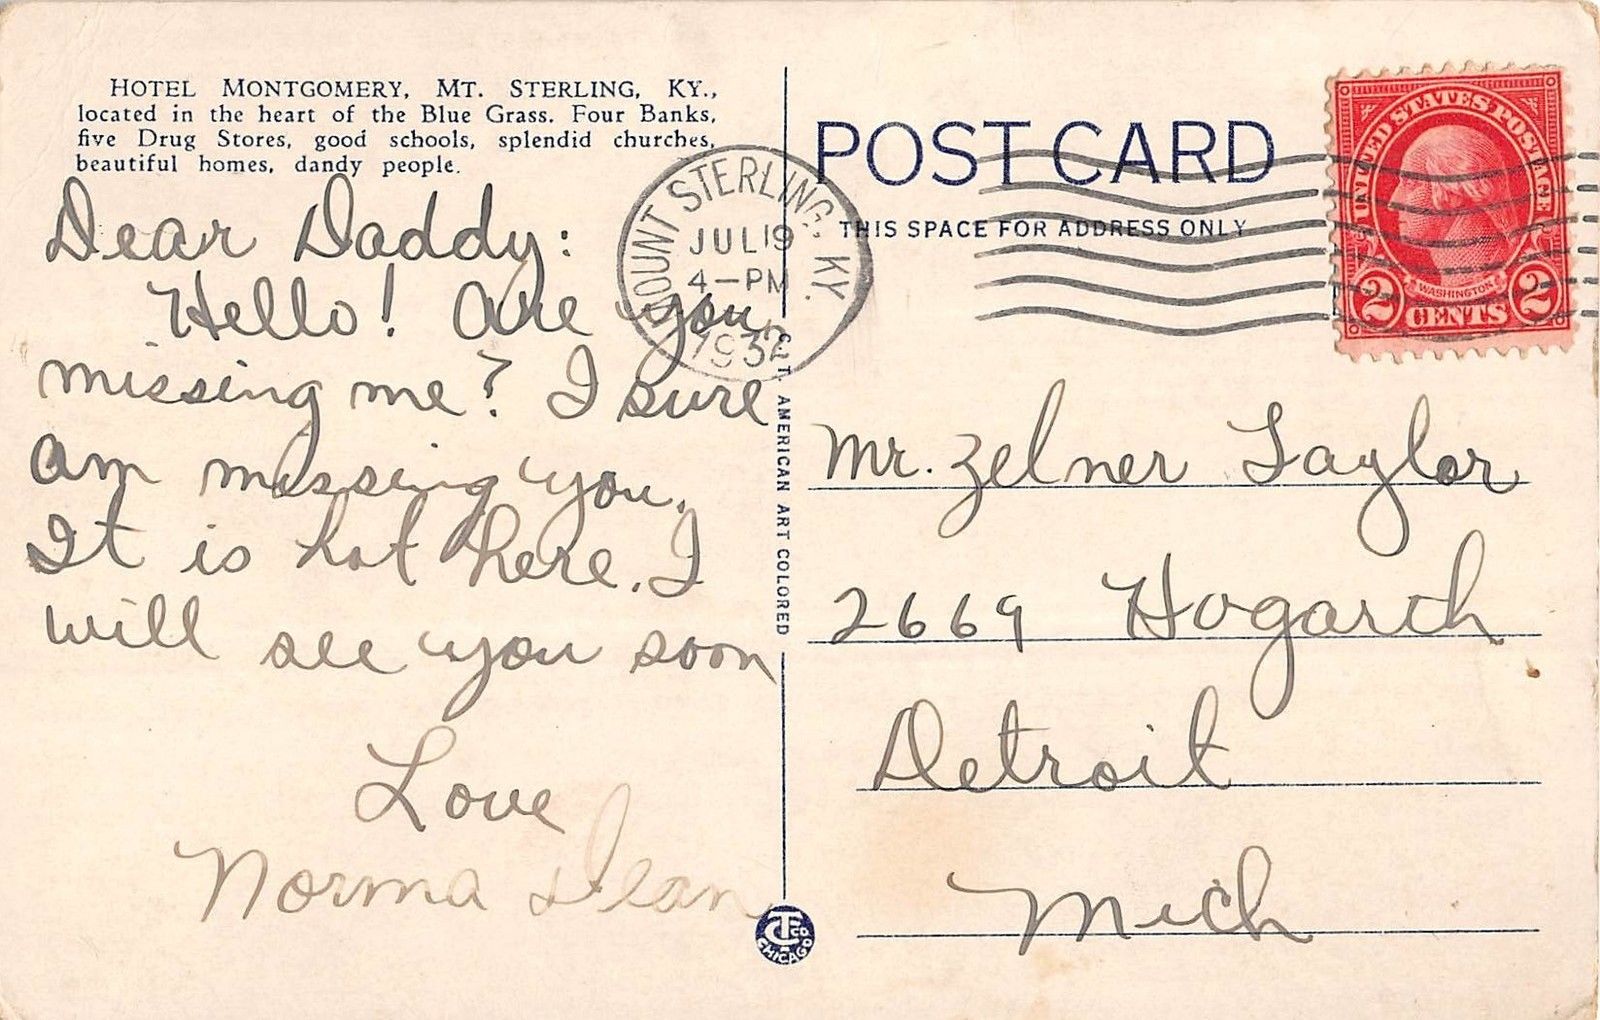 HOTEL MONTGOMERY, MT. STERLING, KY.,
located in the heart of the Blue Grass. Four Banks,
five Drug Stores, good schools, splendid churches,
beautiful homes, dandy people.
Dear Daddy:
Hello! Are you
missing me? I sure
am missing you.
It is hot here. I
will see you soon
Love
Norma Dean
MOUNT STERLING, KY.
JUL 19
4-PM
1932
C. T. AMERICAN ART COLORED
CTCO
CHICAGO
POST CARD
THIS SPACE FOR ADDRESS ONLY
UNITED STATES POSTAGE
WASHINGTON
2 CENTS 2
Mr. Zelner Taylor
2669 Hogarth
Detroit
Mich